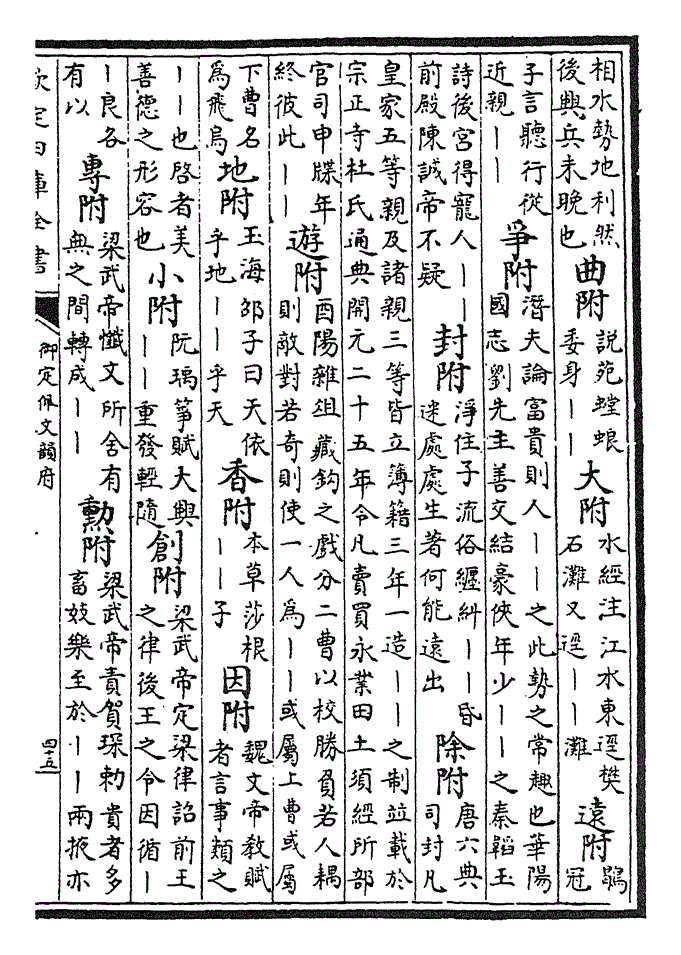 相水勢地利然後興兵未晚也曲附説苑螳螂委身――大附水經注江水東逕樊石灘又逕――灘遠附鶡冠
子言聽行從近親――爭附潛夫論富貴則人――之此勢之常趣也華陽國志劉先主善交結豪俠年少――之秦韜玉
詩後宮得寵人――前殿陳誠帝不疑封附淨住子流俗纒糾――昏迷處處生著何能遠出除附唐六典司封凡
皇家五等親及諸親三等皆立簿籍三年一造――之制並載於宗正寺杜氏通典開元二十五年令凡賣買永業田土須經所部
官司申牒年終彼此――遊附酉陽雜俎藏鈎之戲分二曹以校勝負若人耦則敵對若奇則使一人為――或屬上曹或屬
下曹名為飛鳥地附玉海邵子曰天依乎地――乎天香附本草莎根――子因附魏文帝教賦者言事類之
――也啓者美善德之形容也小附阮瑀箏賦大興――重發輕隨創附梁武帝定梁律詔前王之律後王之令因循―
―良各有以專附梁武帝懺文所舍有無之間轉成――勲附梁武帝責賀琛勅貴者多畜妓樂至於――兩掖亦
欽定四庫全書
御定佩文韻府
四十五